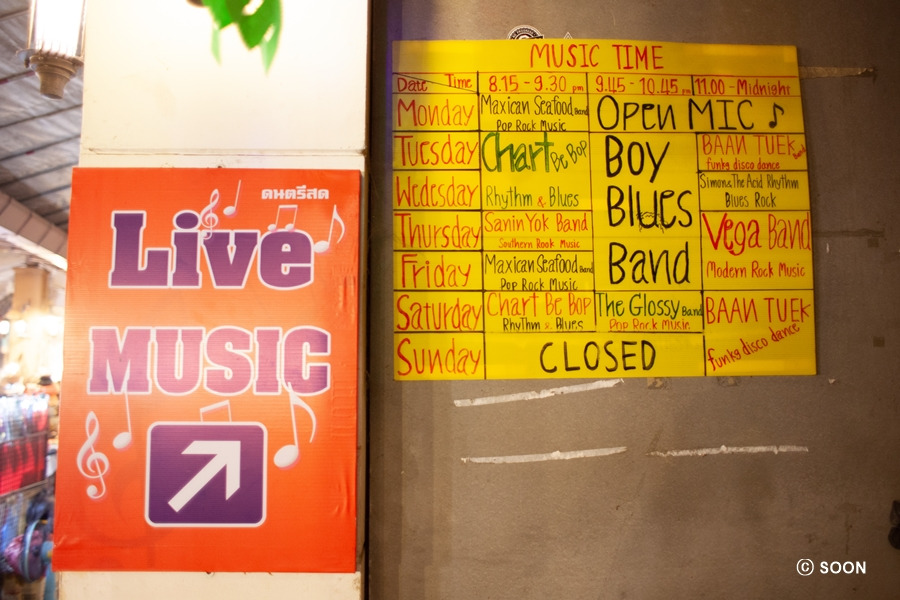 ดนตรีสด
Live
MUSIC
MUSIC TIME
Date Time 8.15 - 9.30 pm 9.45 - 10.45 pm 11.00 - Midnight
Monday Maxican Seafood Band OPEN MIC
Pop Rock Music
Tuesday Chart Be Bop BOY BAAN TUEK Band
funky disco dance
Wedesday Rhythm & Blues Blues Simon & The Acid Rhythm
Blues Rock
Thursday Sanin Yok Band Vega Band
Southern Rook Music
Friday Maxican Seafood Band Band Modern Rock Music
Pop Rock Music
Saturday Chart Be Bop The Glossy Band BAAN TUEK
Rhythm & Blues Pop Rock Music
Sunday CLOSED funky disco dance
© SOON